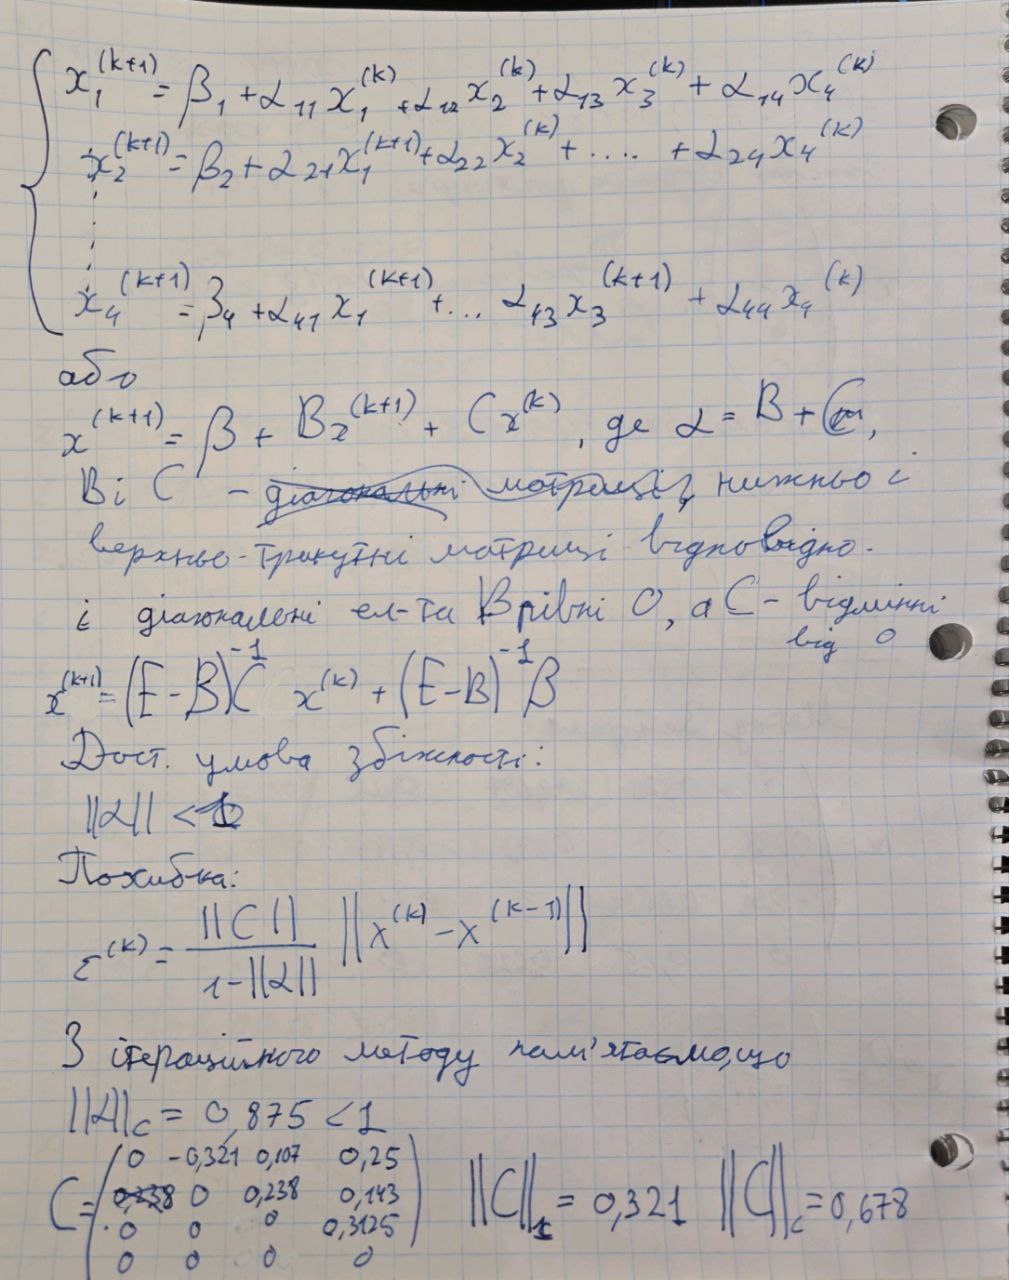 x₁^(k+1) = β₁ + α₁₁ x₁^(k) + α₁₂ x₂^(k) + α₁₃ x₃^(k) + α₁₄ x₄^(k)
x₂^(k+1) = β₂ + α₂₁ x₁^(k+1) + α₂₂ x₂^(k) + .... + α₂₄ x₄^(k)
x₄^(k+1) = β₄ + α₄₁ x₁^(k+1) + ... α₄₃ x₃^(k+1) + α₄₄ x₄^(k)
або
x^(k+1) = β + Bx^(k+1) + Cx^(k), де α = B + C,
B і C - нижньо і
верхньо-трикутні матриці відповідно.
і діагональні ел-та B рівні 0, а C - відмінні
від 0
x^(k+1) = (E-B)^-1 C x^(k) + (E-B)^-1 β
Дост. умова збіжності:
||α|| < 1
Похибка:
ε^(k) = ||C|| / (1-||α||) ||x^(k) - x^(k-1)||
З ітераційного методу пам'ятаємо, що
||α||c = 0,875 < 1
C = ( 0 -0,321 0,107 0,25
0 0,238 0,143
0 0 0 0,3125
0 0 0 0 )
||C||₁ = 0,321 ||C||c = 0,678